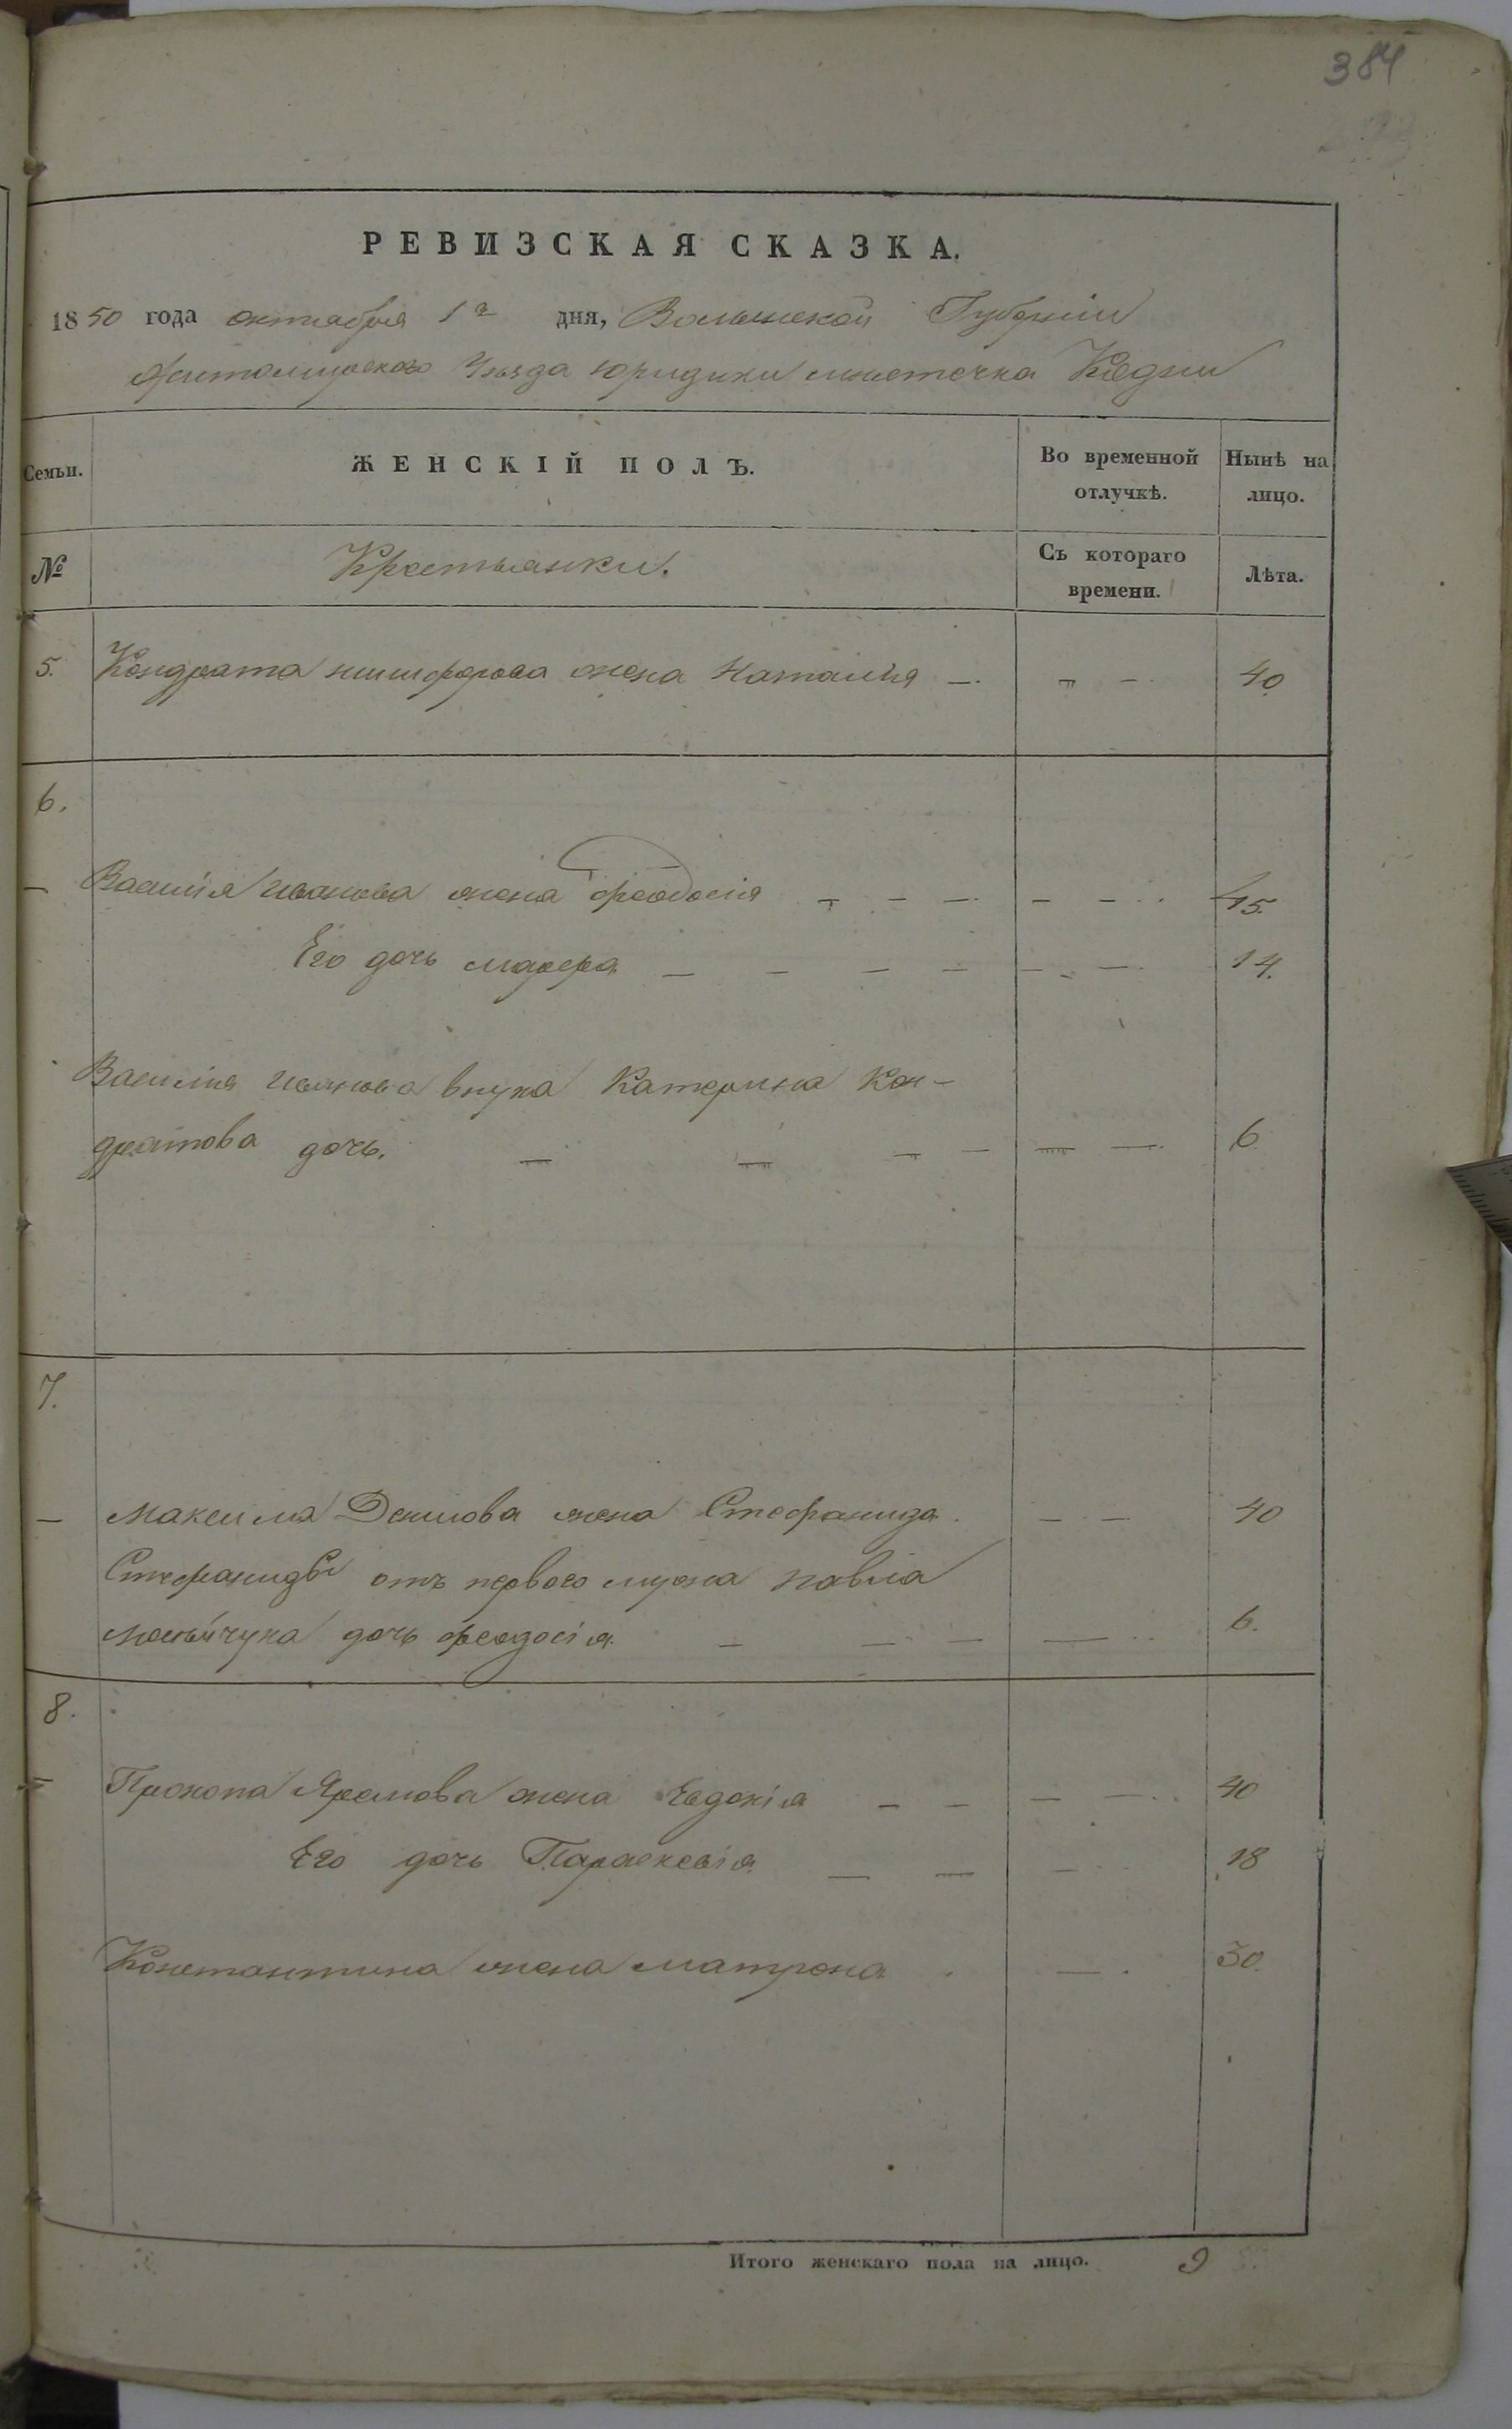 384
РЕВИЗСКАЯ СКАЗКА.
1850 года октября 1го дня, Волынской Губернии
Житомирского Уѣзда юридики мѣстечка Кодни
Семьи. ЖЕНСКІЙ ПОЛЪ. Во временной отлучкѣ. Нынѣ на лицо.
№ Крестьянки. Съ котораго времени. Лѣта.
5. Кондрата никифорова жена Наталія — — — 40
6.
— Василія Иванова жена феодосія — — — — — 45.
Его дочь марфа — — — — — — 14.
Василія Иванова внука Катерина Кон-
дратова дочь. — — — — — — 6
7.
— Максима Денисова жена Стефанида — — 40
Стефаниды отъ первого мужа павла
дочь феодосія. — — — — 6.
8.
— Прокопа Яремова жена Евдокія — — — — 40
Его дочь Параскевія — — — 18
Константина жена матрона — 30.
Итого женскаго пола на лицо. 9